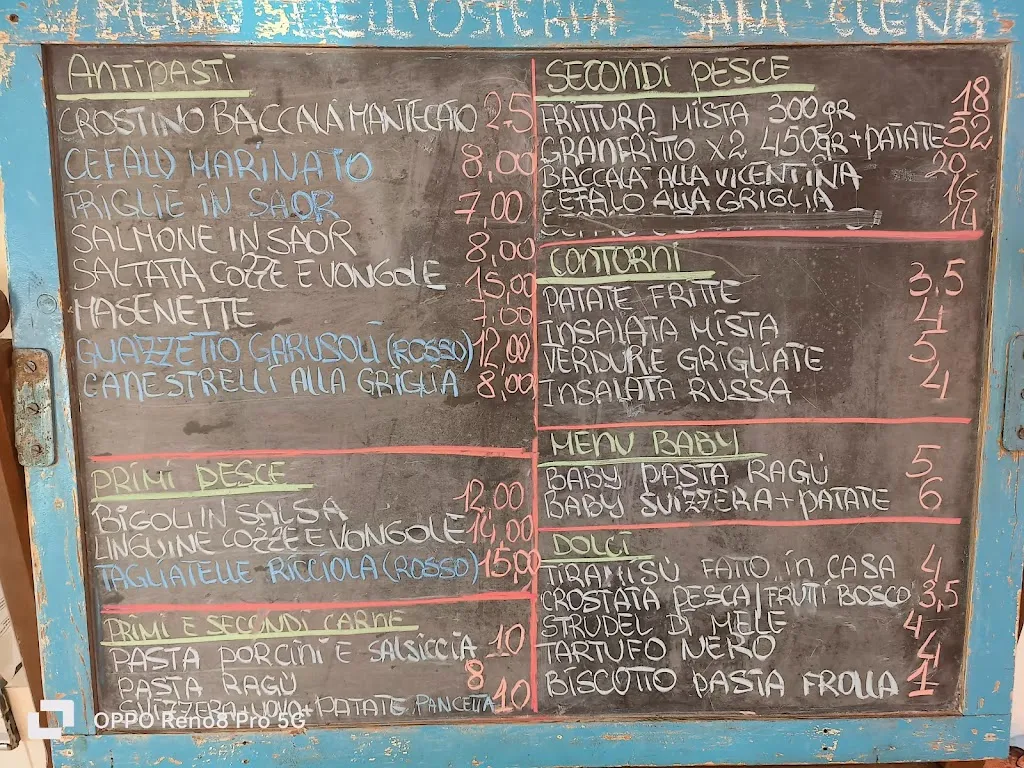 MENÙ DELL'OSTERIA SANT'ELENA
ANTIPASTI
CROSTINO BACCALÀ MANTECATO 2.5
CEFALO MARINATO 8,00
TRIGLIE IN SAOR 7,00
SALMONE IN SAOR 8,00
SALTATA COZZE E VONGOLE 15,00
MASENETTE 7,00
GUAZZETTO GARUSOLI (ROSSO) 12,00
CANESTRELLI ALLA GRIGLIA 8,00
PRIMI PESCE
BIGOLI IN SALSA 12,00
LINGUINE COZZE E VONGOLE 14,00
TAGLIATELLE RICCIOLA (ROSSO) 15,00
PRIMI E SECONDI CARNE
PASTA PORCINI E SALSICCIA 10
PASTA RAGÙ 8
SVIZZERA+UOVA+PATATE PANCETTA 10
SECONDI PESCE
FRITTURA MISTA 300GR 18
GRANFRITTO X2 450GR+PATATE 32
BACCALÀ ALLA VICENTINA 20
CEFALO ALLA GRIGLIA 16
14
CONTORNI
PATATE FRITTE 3,5
INSALATA MISTA 4
VERDURE GRIGLIATE 5
INSALATA RUSSA 4
MENU BABY
BABY PASTA RAGÙ 5
BABY SVIZZERA+PATATE 6
DOLCI
TIRAMISÙ FATTO IN CASA 4
CROSTATA PESCA/FRUTTI BOSCO 3,5
STRUDEL DI MELE 4
TARTUFO NERO 4
BISCOTTO PASTA FROLLA 1
OPPO Reno8 Pro 5G